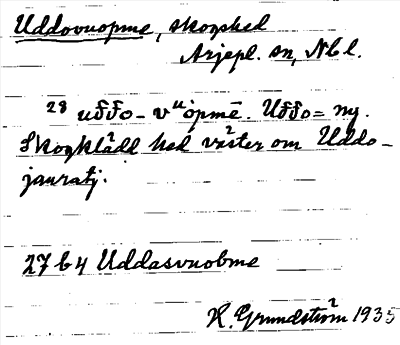 Uddovuopme, skogshed
Arjepl. sn, Nbl.
28 uδ̄δo - vᵘòpmē. Uδ̄δo = ny.
Skogklädd hed väster om Uddo-
jauratj.
27 b 4 Uddasvuobme
H. Grundström 1935